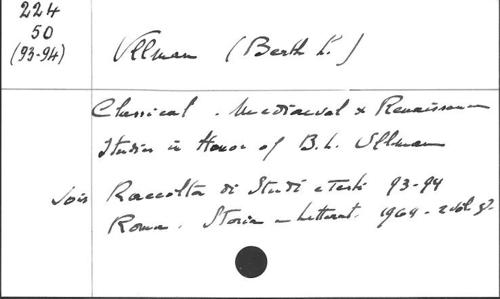 224
50
(93-94)
Ullman (Berth L.)
Classical. Mediaeval & Renaissance
Studies in Honor of B. L. Ullman
Vois Raccolta di Studi e Testi 93-94
Roma. Storia e Letterat. 1964 - 2 vol. 8°